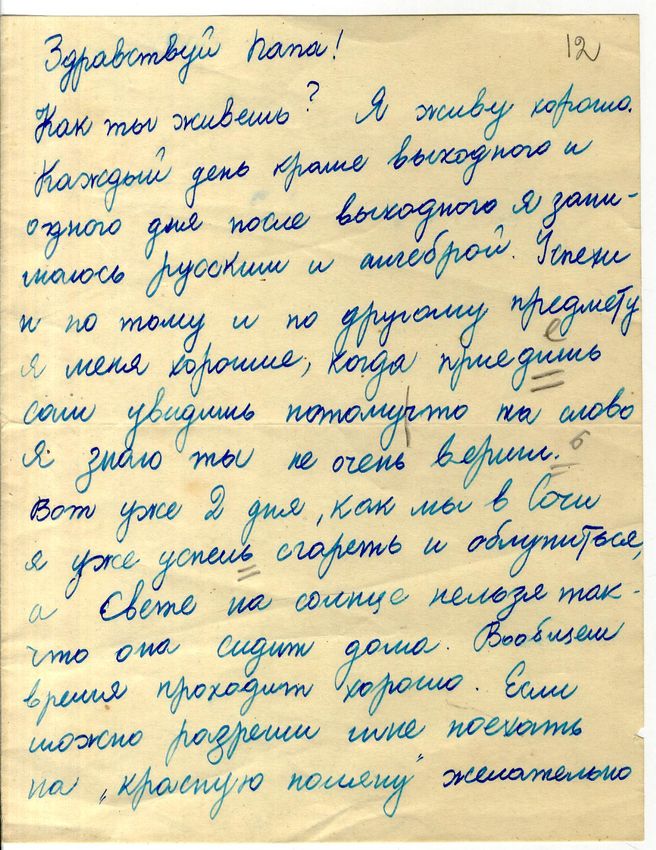 12
Здравствуй Папа!
Как ты живешь? Я живу хорошо.
Каждый день кроме выходного и
одного дня после выходного я зани-
маюсь русским и алгеброй. Успехи
и по тому и по другому предмету
у меня хорошие, когда приедишь
сам увидишь потомучто на слово
я знаю ты не очень вериш.
Вот уже 2 дня, как мы в Сочи
я уже успель сгореть и облупиться,
а Свете на солнце нельзя так-
что она сидит дома. Вообщем
время проходит хорошо. Если
можно разреши мне поехать
на „красную поляну" желательно